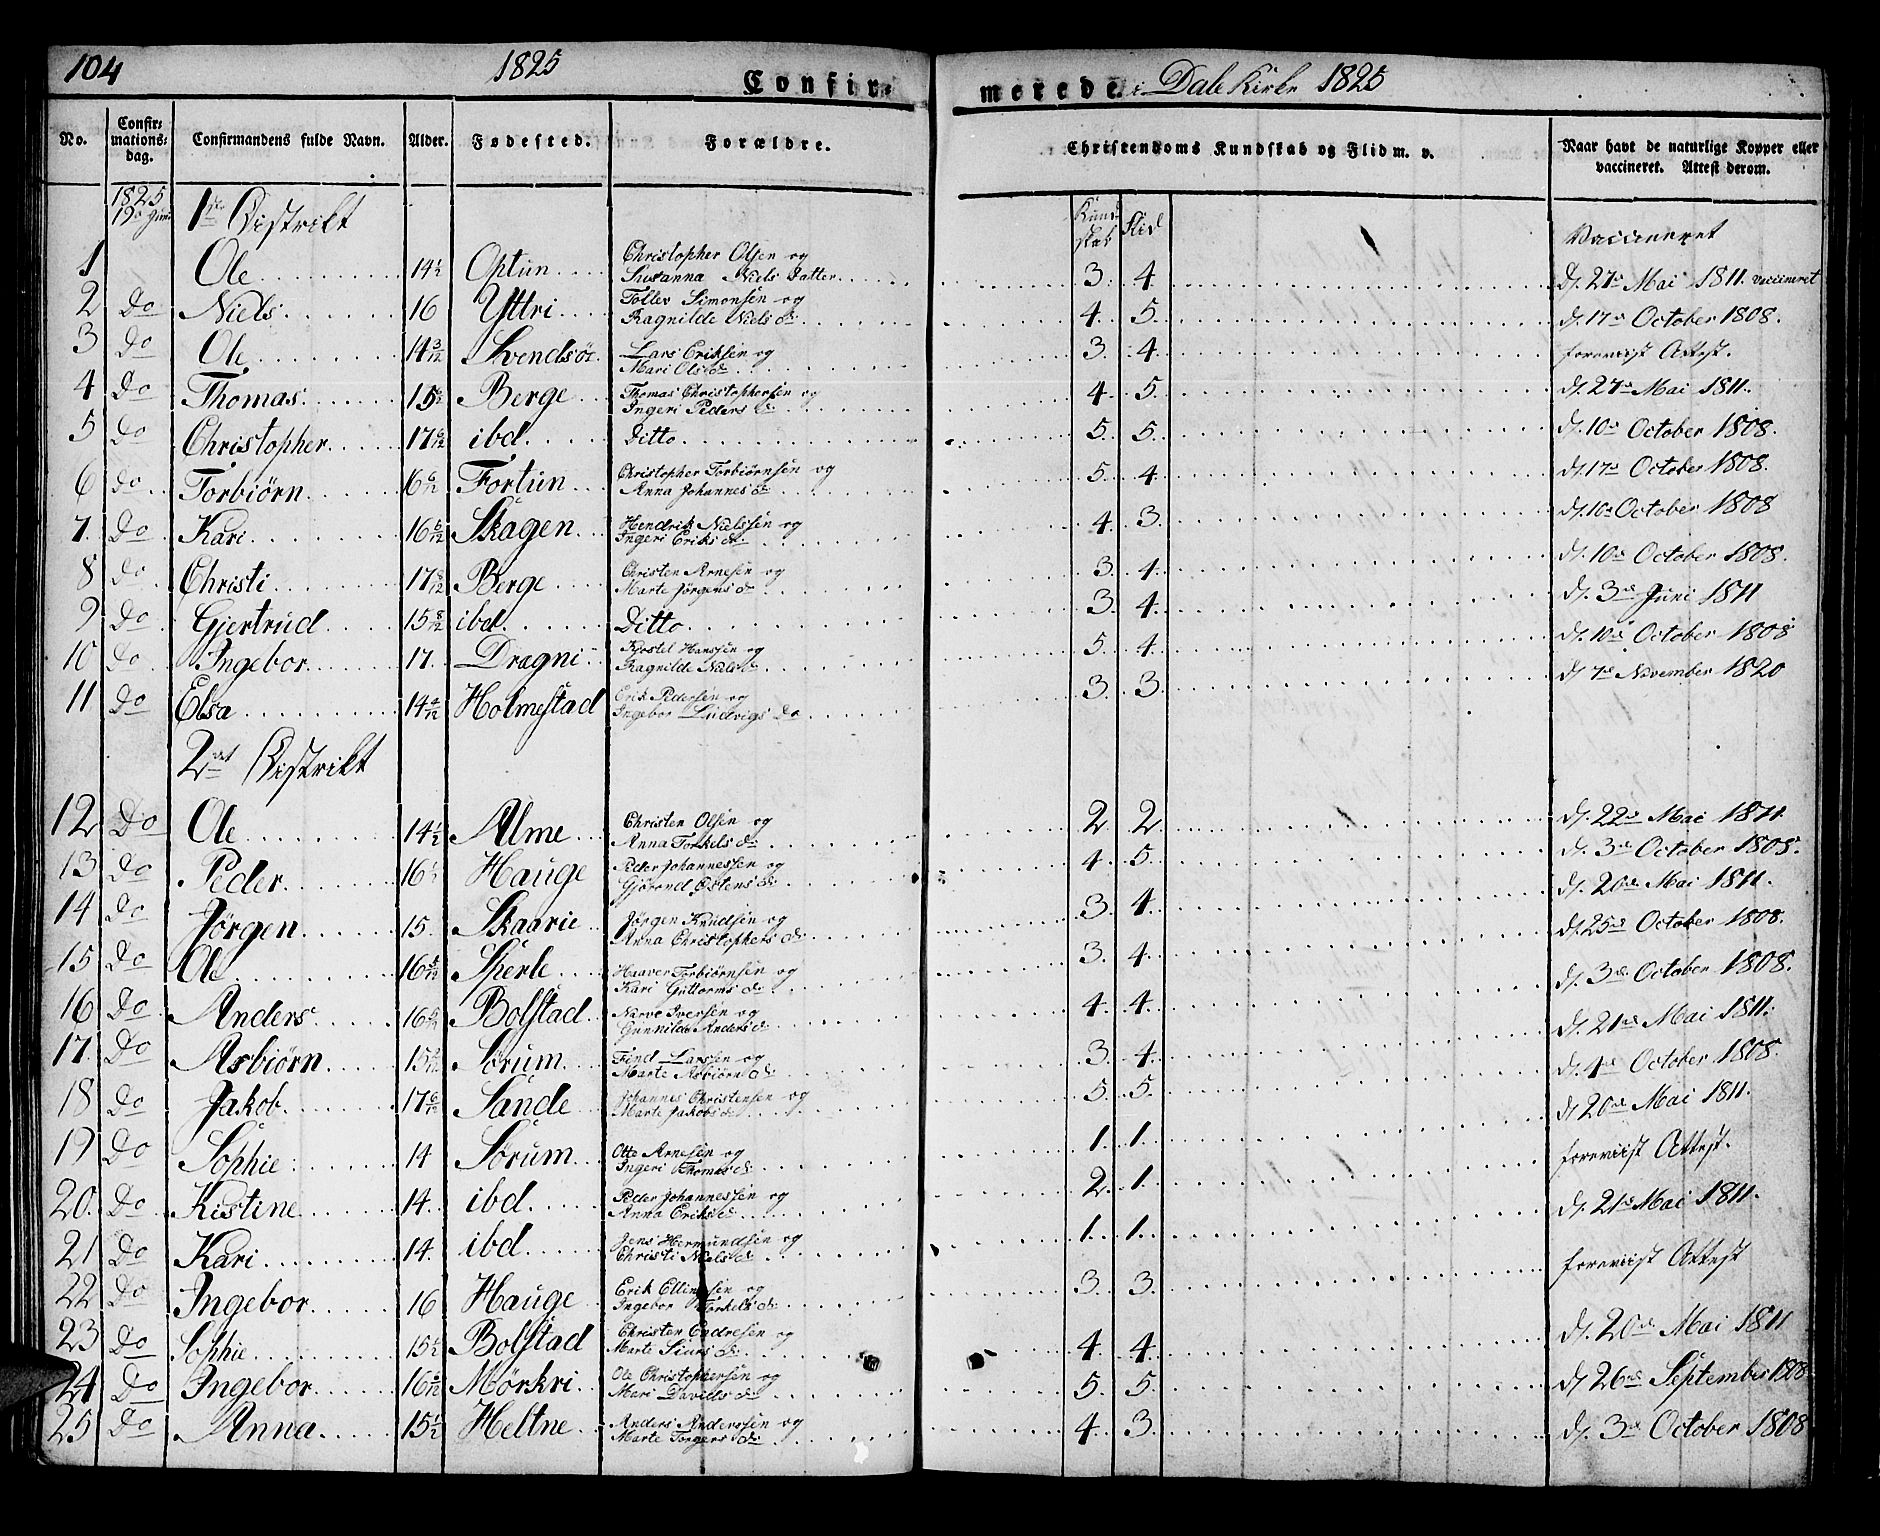 104 1825 Confir- merede i Dale Kirke 1825
No. Confir-mations-dag. Confirmandens fulde Navn. Alder. Fødested. Forældre. Christendoms Kundskab og Flid m. v. Naar havt de naturlige Kopper eller vaccineret. Attest derom.
1825 19de Juni 1ste Distrikt Kund-skab Flid Vaccineret
1 Ole 14½ Optun Christopher Olsen og Susanna Niels Datter 3. 4. d. 27de Mai 1811. vaccineret
2 Do Niels 16 Yttri Tollev Simonsen og Ragnilde Niels dr 4. 5. d. 17de October 1808.
3 Do Ole 14 3/12 Svendsøe Lars Eriksen og Mari Ols dr 3. 4. foreviist Attest.
4 Do Thomas 15 Berge Thomas Christophersen og Ingeri Peders dr 4. 5. d. 27de Mai 1811.
5 Do Christopher 17 6/12 ibd. Ditto 5. 5. d. 10de October 1808.
6 Do Torbiörn 16 6/12 Fortun Christopher Torbiörnsen og Anna Johannes dr 5. 4. d. 17de October 1808.
7. Do Kari 16 6/12 Skagen Hendrik Nielssen og Ingeri Eriks dr 4. 3. d. 10de October 1808
8 Do Christi 17 8/12 Berge Christen Arnesen og Marte Jørgens dr 3. 4. d. 10de October 1808.
9 Do Gjertrud 15 8/12 ibd. Ditto 3. 4. d. 3die Juni 1811
10 Do Ingebor 17. Drægni Kjostel Hanssen og Ragnilde Niels dr 5. 4. d. 10de October 1808
11 Do Elsa 14 Holmestad Erik Pedersen og Ingebor Ludvigs Do 3. 3. d. 7de November 1820
2det Distrikt
12 Do Ole 14½ Alme Christen Olsen og Anna Torkels dr 2 2 d. 22de Mai 1811.
13 Do Peder 16 Hauge Peder Johannessen og Gjørend Ostens dr 4. 5. d. 3die October 1808.
14 Do Jørgen 15. Skaarie Jørgen Knudsen og Anna Christophers dr 3. 4. d. 20de Mai 1811.
15 Do Ole 16 Sperle Haaver Torbiörnsen og Kari Guttorms dr 3. 4. d. 25de October 1808.
16 Do Anders 16 Bolstad Narve Iversen og Gunnilde Anders dr 4. 4. d. 3die October 1808.
17. Do Asbiörn 15 Sørum Find Larssen og Marte Asbiörn dr 3. 4. d. 21de Mai 1811.
18 Do Jakob 17 6/12 Sande Johannes Christensen og Marte Jakobs dr 5. 5. d. 4de October 1808.
19 Do Sophie 14 Sørum Otte Arnesen og Ingeri Thomas dr 1. 1. d. 20de Mai 1811.
20. Do Kistine 14. ibd. Peder Johannessen og Anna Eriks dr 2. 1. foreviist Attest.
21 Do Kari 14. ibd. Jens Hermundsen og Christi Niels dr 1. 1. d. 21de Mai 1811.
22 Do Ingebor 16 Hauge Erik Ellingsen og Ingebor Torkels dr 3. 3. foreviist Attest
23 Do Sophie 15½ Bolstad Christen Endresen og Marte Siurs dr 4. 4. d. 20de Mai 1811
24 Do Ingebor 16 Mörkri Ole Christophersen og Mari Davids dr 5. 5. d. 26de September 1808
25 Do Anna 15½ Heltne Anders Anderssen og Marte Torgers dr 4. 3. d. 3die October 1808